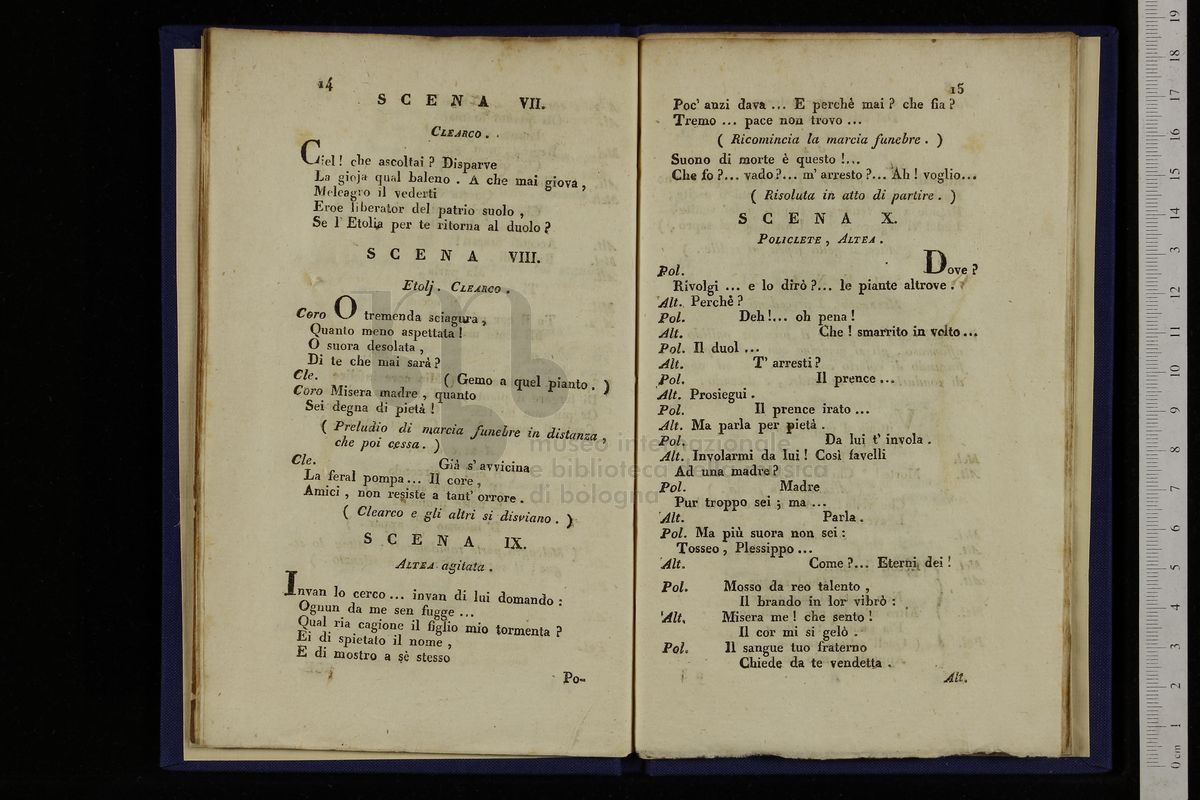 14
SCENA VII.
CLEARCO.
Ciel! che ascoltai? Disparve
La gioja qual baleno. A che mai giova,
Meleagro il vederti
Eroe liberator del patrio suolo,
Se l'Etolia per te ritorna al duolo?
SCENA VIII.
Etolj. CLEARCO.
Coro O tremenda sciagura,
Quanto meno aspettata!
O suora desolata,
Di te che mai sarà?
Cle. (Gemo a quel pianto.)
Coro Misera madre, quanto
Sei degna di pietà!
(Preludio di marcia funebre in distanza,
che poi cessa.)
Cle. Già s'avvicina
La feral pompa... Il core,
Amici, non resiste a tant' orrore.
(Clearco e gli altri si disviano.)
SCENA IX.
ALTEA agitata.
Invan lo cerco... invan di lui domando:
Ognun da me sen fugge...
Qual ria cagione il figlio mio tormenta?
Ei di spietato il nome,
E di mostro a sè stesso
Po-
15
Poc' anzi dava... E perchè mai? che fia?
Tremo... pace non trovo...
(Ricomincia la marcia funebre.)
Suono di morte è questo!...
Che fo?... vado?... m'arresto?... Ah! voglio...
(Risoluta in atto di partire.)
SCENA X.
POLICLETE, ALTEA.
Pol. Dove?
Rivolgi... e lo dirò?... le piante altrove.
Alt. Perchè?
Pol. Deh!... oh pena!
Alt. Che! smarrito in volto...
Pol. Il duol...
Alt. T' arresti?
Pol. Il prence...
Alt. Prosiegui.
Pol. Il prence irato...
Alt. Ma parla per pietà.
Pol. Da lui t' invola.
Alt. Involarmi da lui! Così favelli
Ad una madre?
Pol. Madre
Pur troppo sei; ma...
Alt. Parla.
Pol. Ma più suora non sei:
Tosseo, Plessippo...
Alt. Come?... Eterni dei!
Pol. Mosso da reo talento,
Il brando in lor vibrò:
Alt. Misera me! che sento!
Il cor mi si gelò.
Pol. Il sangue tuo fraterno
Chiede da te vendetta.
Alt.
museo internazionale
e biblioteca della musica
di bologna
0 cm 1 2 3 4 5 6 7 8 9 10 11 12 13 14 15 16 17 18 19